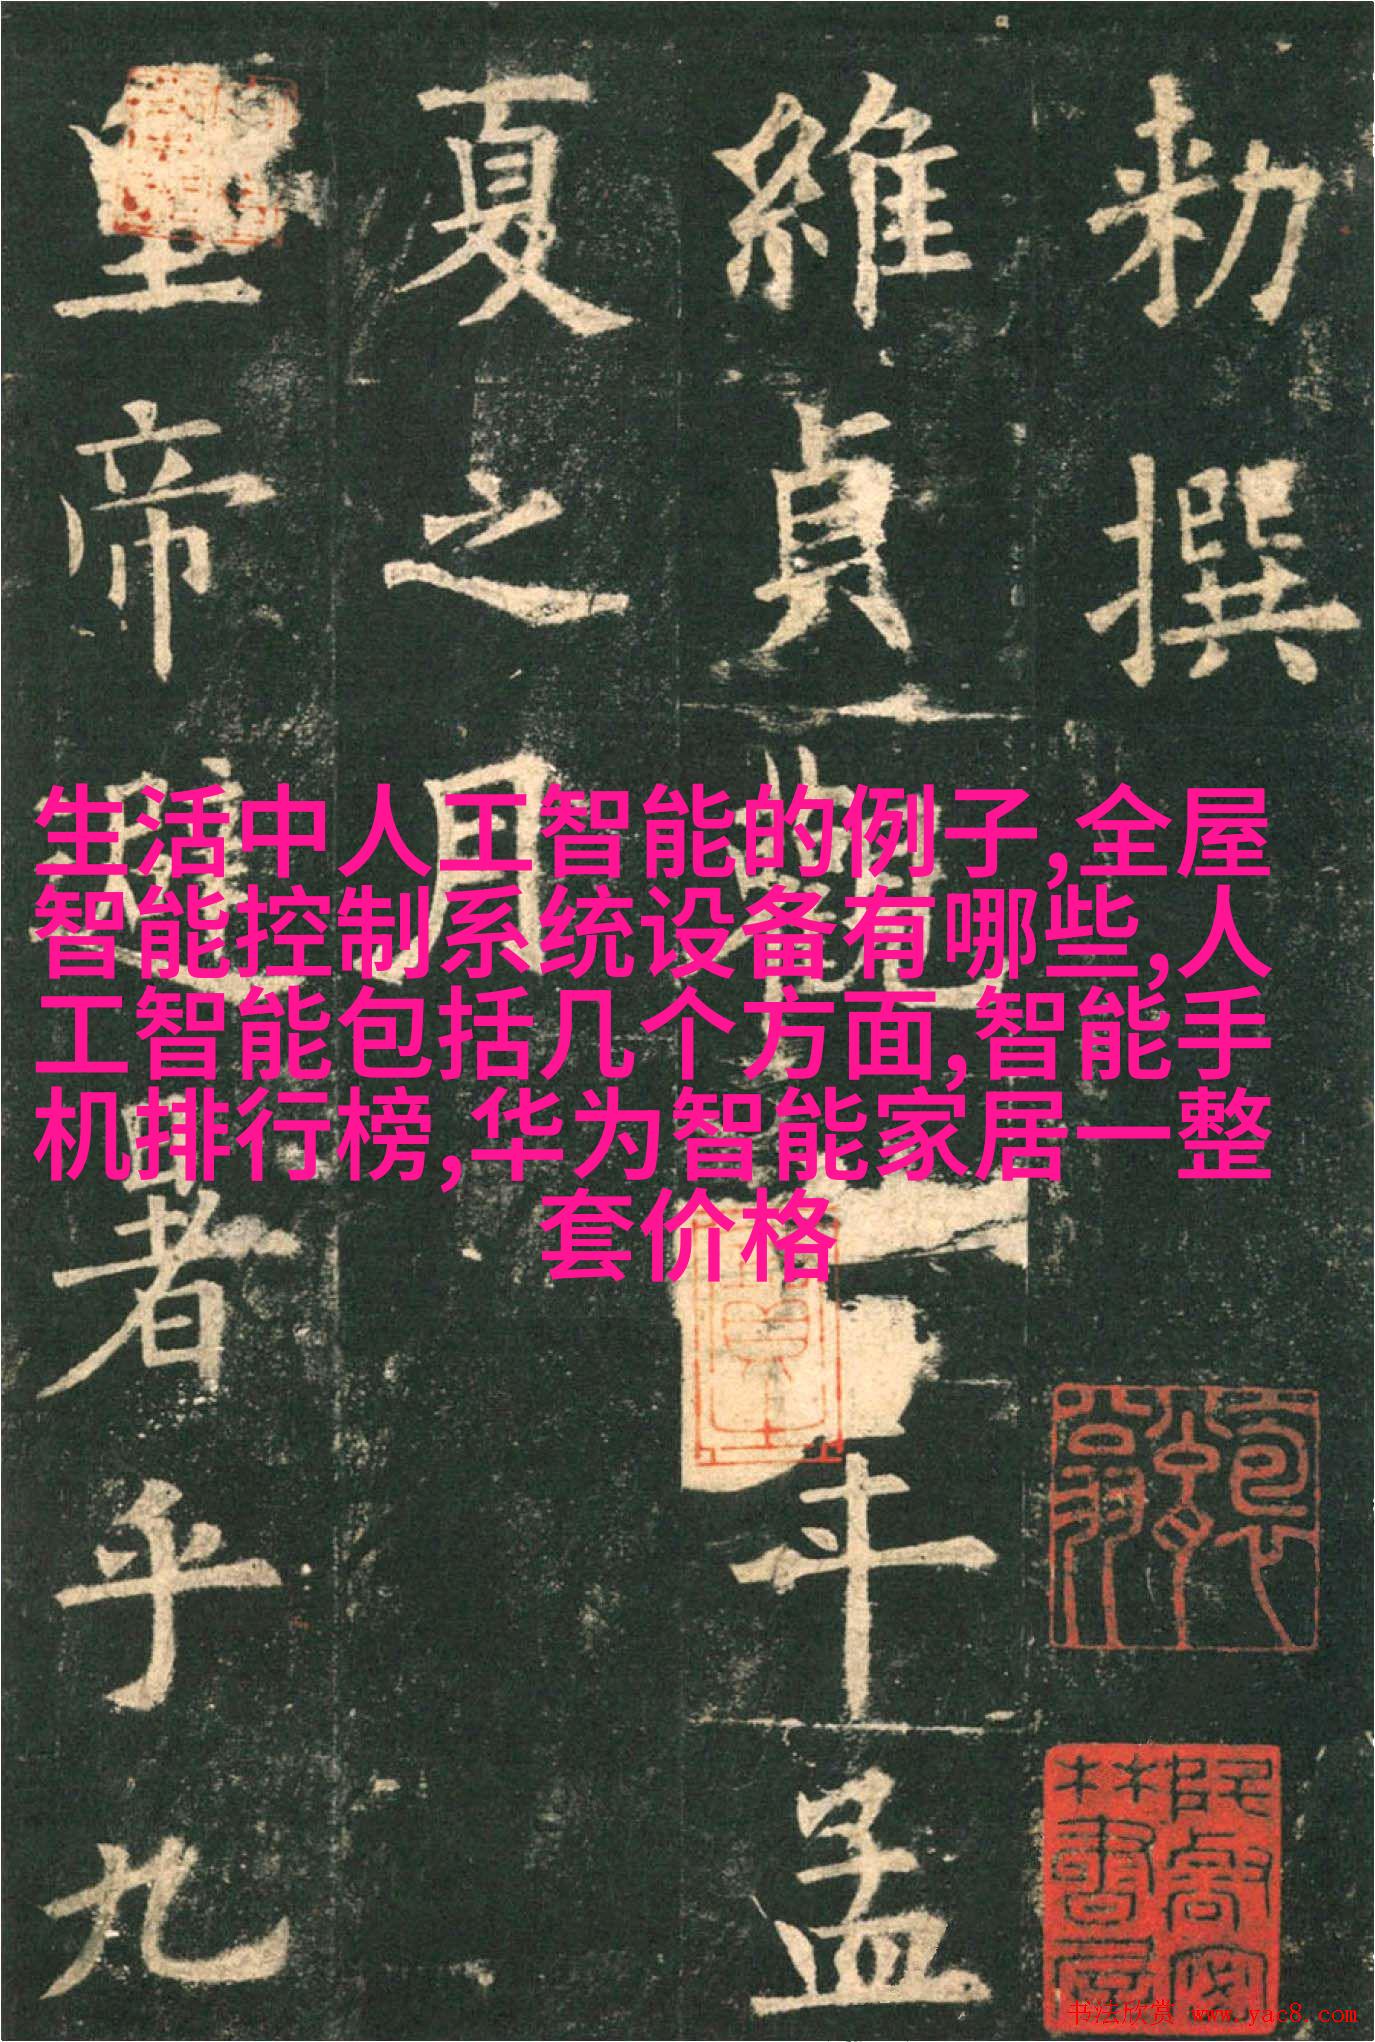 勑撰
維貞觀年孟
夏之月
皇帝避暑乎九
生活中人工智能的例子,全屋
智能控制系统设备有哪些,人
工智能包括几个方面,智能手
机排行榜,华为智能家居一整
套价格
书法欣赏 www.yac8.com